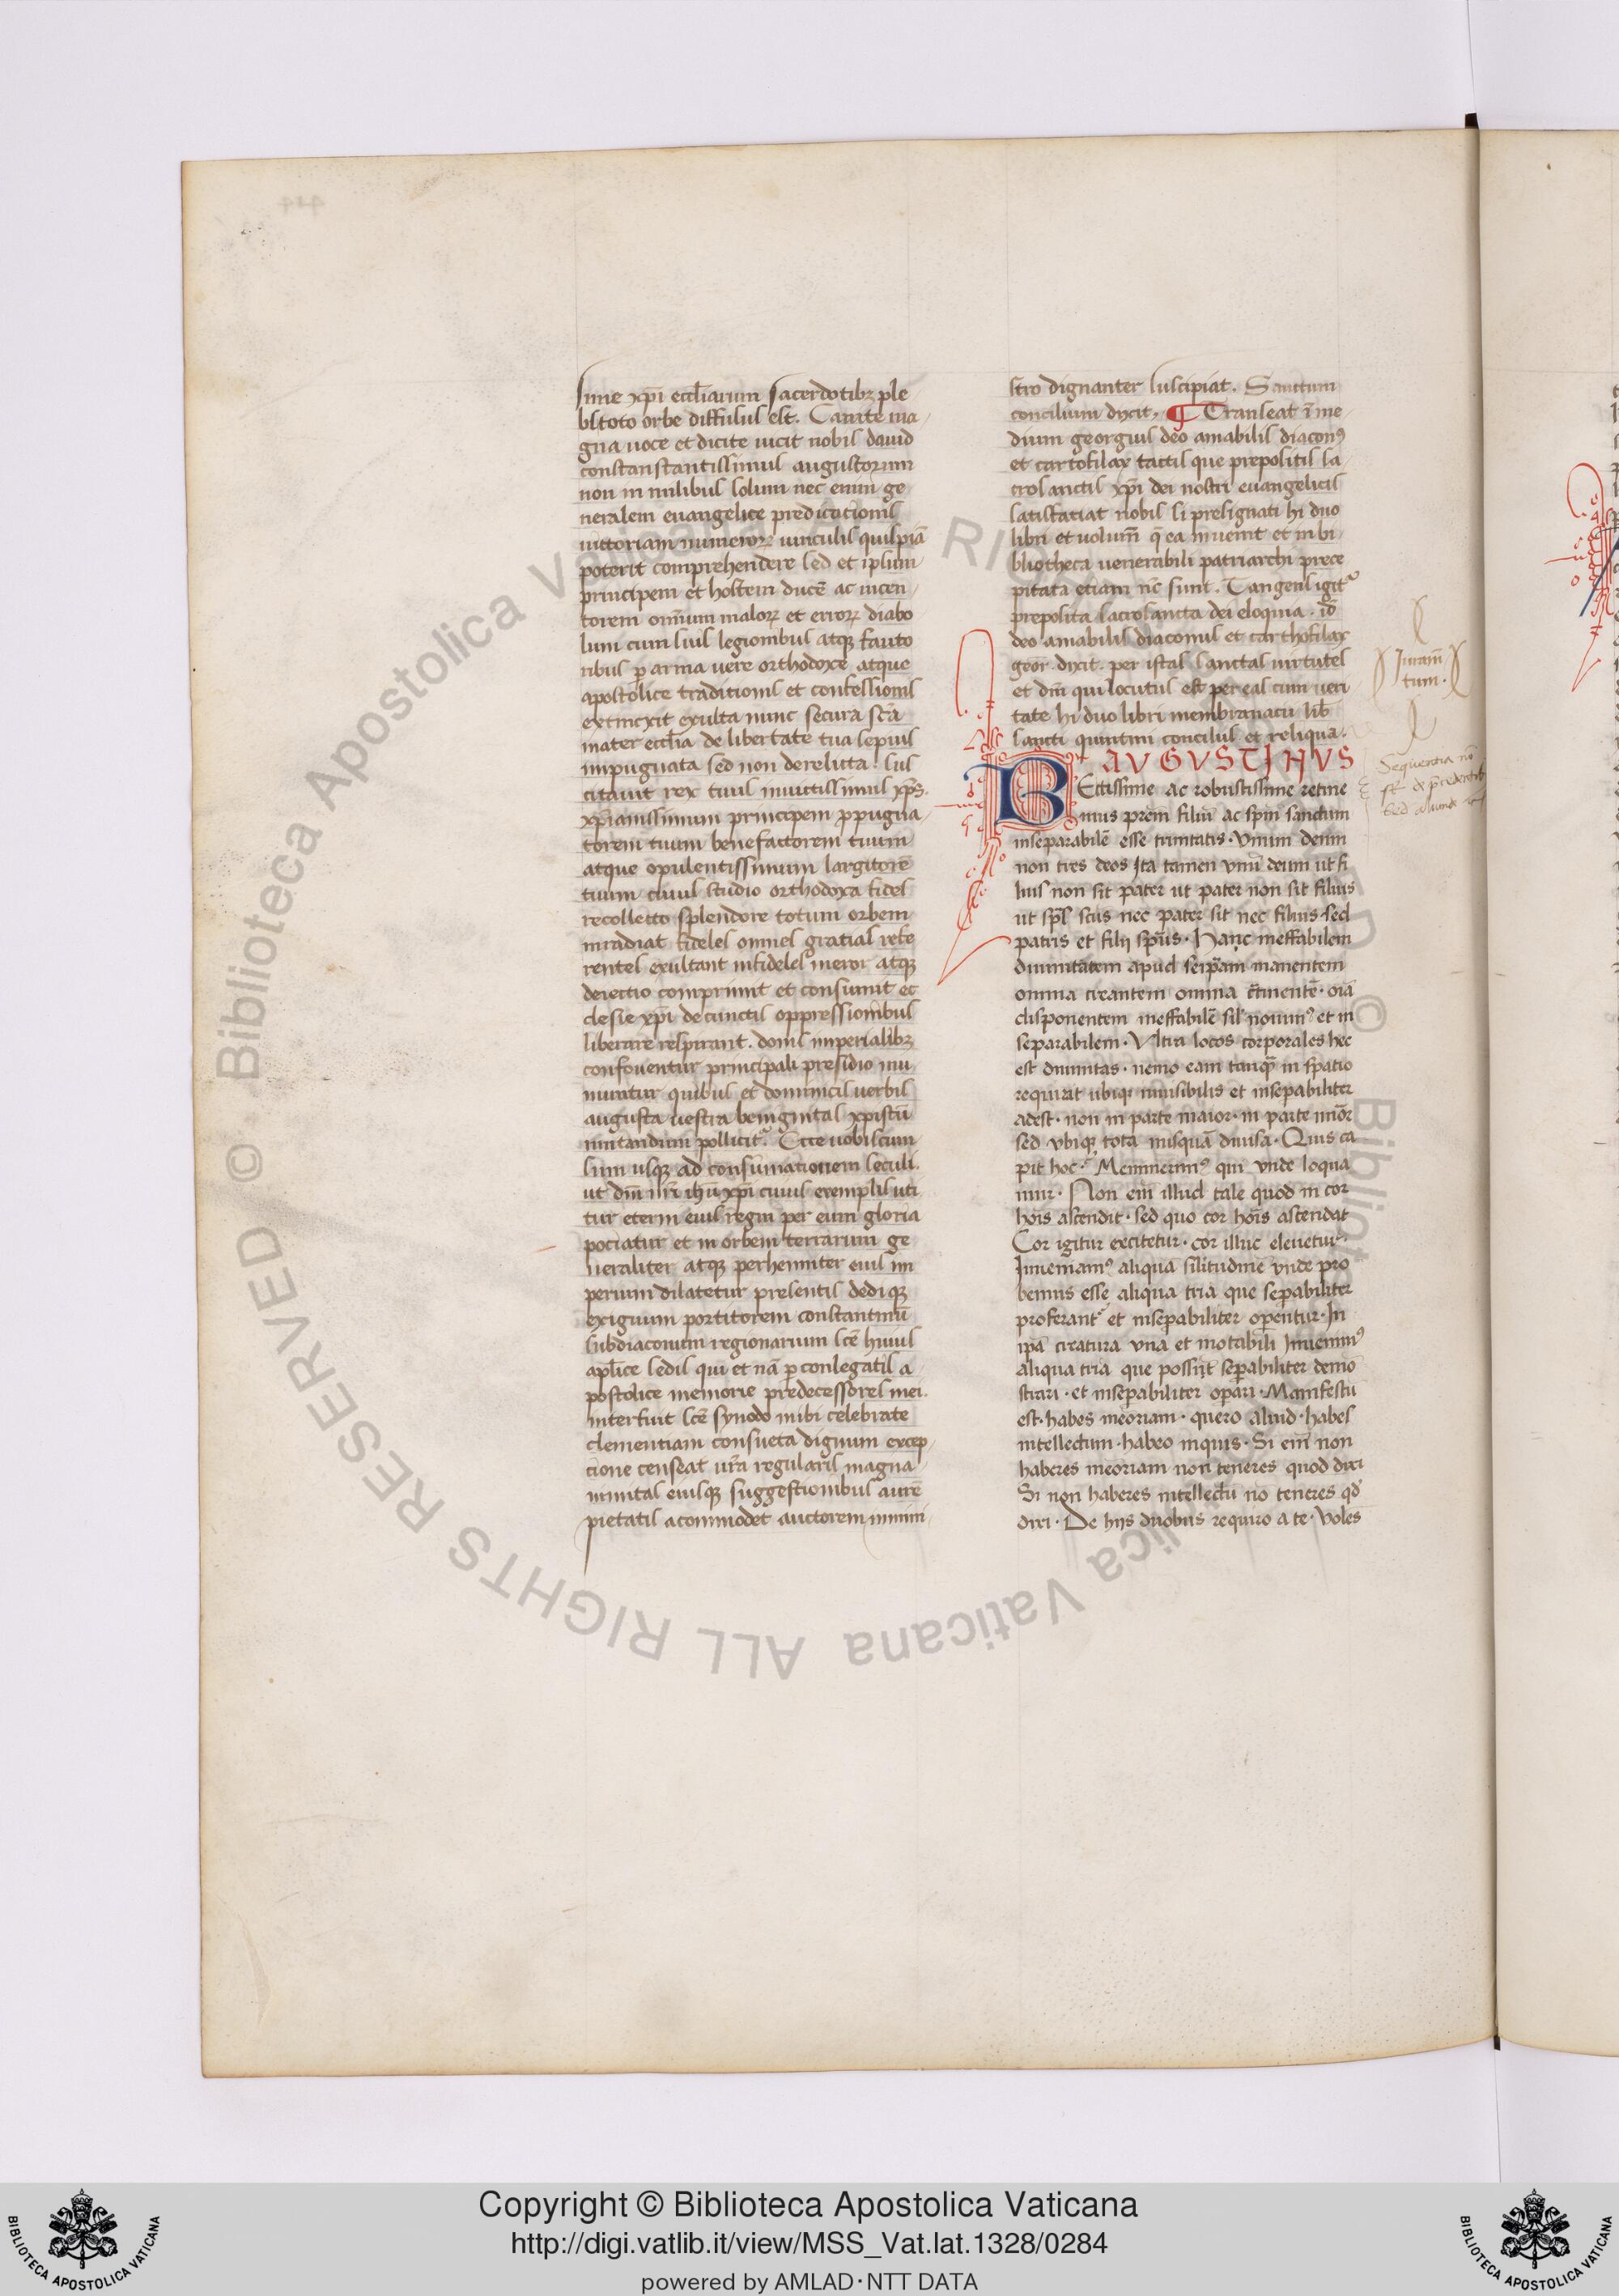 sime xp̄i eccl̄iarum sacerdotibꝫ ple
bs toto orbe diffusus est. Cantate ma
gna uoce et dicite uicit nobis dauid
constanstantissimus augustorum
non in milibus solum nec enim ge
neralem euangelice predicationis
uictoriam numeroꝝ uinculis quispiā
poterit comprehendere sed et ipsum
principem et hostem ducē ac incen
torem omnium maloꝝ et erroꝝ diabo
lum cum suis legionibus atqꝫ fauto
ribus ꝑ arma uere orthodoxe atque
apostolice traditionis et confessionis
extincxit exulta nunc secura scā
mater eccl̄ia de libertate tua sepius
impugnata sed non derelicta. sus
citauit rex tuus inuictissimus xp̄s.
xp̄ianissimum principem ꝓpugna
torem tuum benefactorem tuum
atque opulentissimum largitorē
tuum cuius studio orthodoxa fides
recollecto splendore totum orbem
inradiat fideles omnes gratias refe
rentes exultant infideles meror atqꝫ
deiectio comprimit et consumit ec
clesie xp̄i de cunctis oppressionibus
liberare respirant. donis imperialibꝫ
confouentur principali presidio mu
niuntur quibus et dominicis uerbis
augusta uestra benignitas xp̄istū
imitandum pollicitᷣ. Ecce uobiscum
sum usqꝫ ad consumationem seculi.
ut dn̄i nr̄i ihū xp̄i cuius exemplis uti
tur eterni eius regni per eum gloria
pociatur et in orbem terrarum ge
neraliter atqꝫ perhenniter eius im
perium dilatetur presentis dediqꝫ
exiguum portitorem constantinū
subdiaconum regionarium scē huius
apl̄ice sedis qui et nā ꝑ conlegatis a
postolice memorie predecessores mei
interfuit scē synodo inibi celebrate
clementiam consueta dignum excep
tione censeat ur̄a regularis magna
nimitas eiusqꝫ suggestionibus aurē
pietatis acommodet auctorem mimi
stro dignanter suscipiat. Sanctum
concilium dixit. ¶ Transeat ī me
dium georgius deo amabilis diaconꝰ
et cartofilax tactis que prepositis sa
crosanctis xp̄i dei nostri euangelicis
satisfatiat nobis si presignati hi duo
libri et uolum̄ q̄ ea inuenit et in bi
bliotheca uenerabili patriarchi prece
pitata etiam nc̄ sunt. Tangens igitᷣ
preposita sacrosancta dei eloquia. id̄
deo amabilis diaconus et carthofilax
geor. dixit. per istas sanctas uirtutes
et dm̄ qui locutus est per eas cum ueri
tate hi duo libri membranacii lib̄
sancti quintini concilus et reliqua.
AVGVSTINVS
REctissime ac robustissime retine
mus prem̄ filiū ac spm̄ sanctum
inseparabilē esse trinitatis. Vnum deum
non tres deos Ita tamen vnū deum ut fi
lius non sit pater ut pater non sit filius
ut sp̄s scūs nec pater sit nec filius sed
patris et filij sp̄us. Hanc ineffabilem
diuinitatem apud seip̄am manentem
omnia creantem omnia c̄tinentē. oīa
disponentem ineffabilē sil̄ nouimꝰ et in
separabilem. Vltra locos corporales hec
est diuinitas. nemo eam tanqꝫ̄ in spatio
requirat ubiqꝫ inuisibilis et insepabiliter
adest. non in parte maior. in parte miōr
sed vbiqꝫ tota nusquā diuisa. Quis ca
pit hoc. Meminerimꝰ qui vnde loqua
mur. Non em̄ illud tale quod in cor
hoīs ascendit. sed quo cor hoīs ascendat
Cor igitur excitetur. cor illuc eleuetur.
Inueniamꝰ aliquā silitudinē vnde pro
bemus esse aliqua tria que sepabiliter
proferantᷣ et insepabiliter operentur. In
ip̄a creatura vna et motabili Inuenimꝰ
aliqua tria que possint sepabiliter demō
strari. et insepabiliter oꝑari. Manifestū
est. habes meōriam. quero aliud. habes
intellectum. habeo inquis. Si em̄ non
haberes meōriam non teneres quod dixi
Si non haberes intellectū nō teneres qd̄
dixi. De hijs duobus requiro a te. Voles
Iuramē
tum.
Sequentia nō
st̄ de p̄cedentibꝫ
sed aliunde
Copyright © Biblioteca Apostolica Vaticana
http://digi.vatlib.it/view/MSS_Vat.lat.1328/0284
powered by AMLAD·NTT DATA
BIBLIOTECA APOSTOLICA VATICANA
BIBLIOTECA APOSTOLICA VATICANA
© Biblioteca Apostolica Vaticana ALL RIGHTS RESERVED